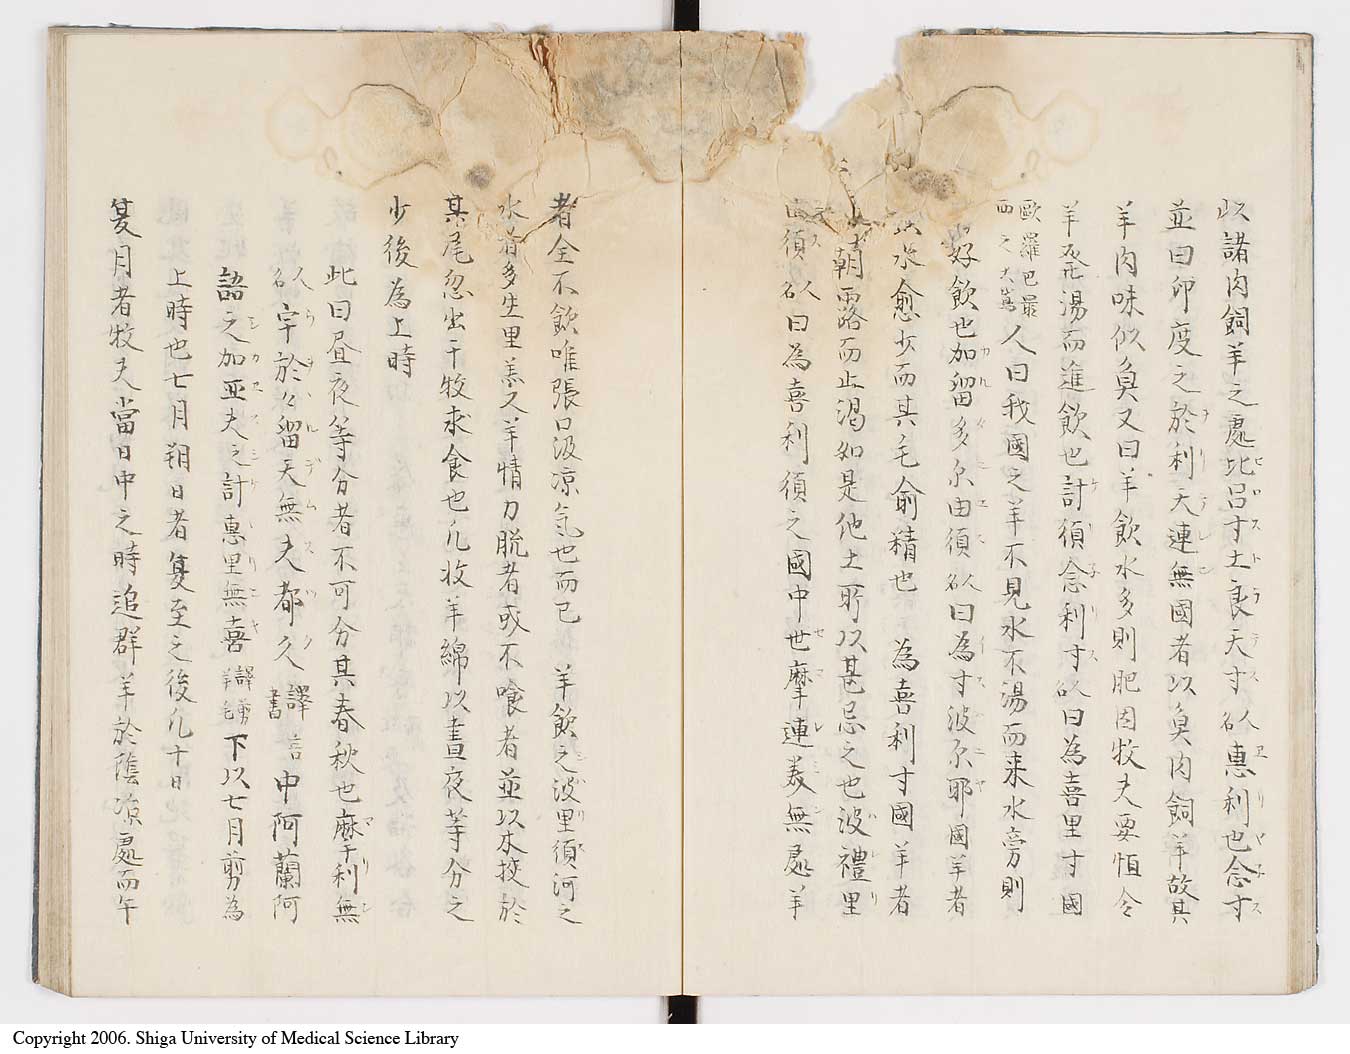 以諸肉飼羊之處比呂寸土良天寸以人惠利也念寸
並曰卯度之於利天連無國者以魚肉飼羊故其
羊肉味似魚又曰羊飲水多則肥因牧夫要怕令
羊発湯而進飲也計須念利寸以曰為喜里寸國
歐羅巴最
西之大嶌
人曰我國之羊不見水不湯而来水旁則
好飲也加留多尓由須以人曰為寸波尓耶國羊者
飲水愈少而其毛愈精也 為喜利寸國羊者
朝露而止渇如是他土所以甚忌之也波禮里
須以人曰為喜利須之國中世摩連美無處羊
者全不飲唯張口汲凉氣也而已 羊飲之波里須河之
水者多生里恙又羊情力脱者或不喰者並以木挍於
其尾忽出干牧求食也凡牧羊綿以晝夜等分之
少後為上時
此曰昼夜等分者不可分其春秋也麻于利無
以人字於々留天無夫都久
譯言
書
中阿蘭阿
語之加亜夫之計惠里無喜
譯剪
羊毛
下以七月剪為
上時也七月朔日者夏至之後凡十日
夏月者牧夫當日中之時追群羊於蔭凉處而午
Copyright 2006. Shiga University of Medical Science Library